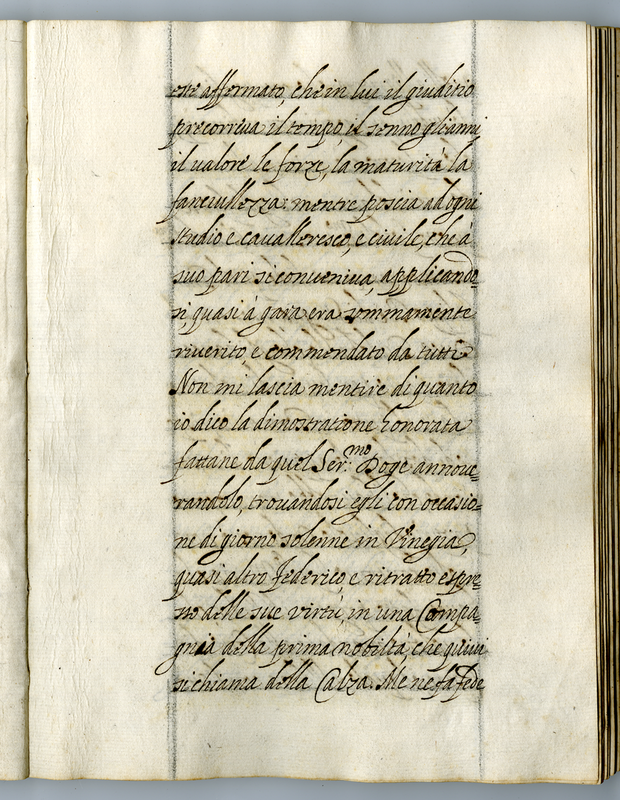 este affermato, che in lui il giuditio
precorriva il tempo, il senno gli anni
il valore le forze, la maturità la
fanciullezza: mentre poscia ad ogni
studio e cavalleresco, e civile, che à
suo pari si conveniva, applicando=
si, quasi à gara era sommamente
riverito e commendato da tutti.
Non mi lascia mentire di quanto
io dico la dimostratione honorata
fattane da quel Ser.mo Doge annove=
randolo, trovandosi egli con occasio=
ne di giorno solenne in Vinegia,
quasi altro Federico, e ritratto espre=
sso delle sue virtù, in una Compa=
gnia della prima nobiltà che quivi
si chiama della Calza. Me ne fa fede